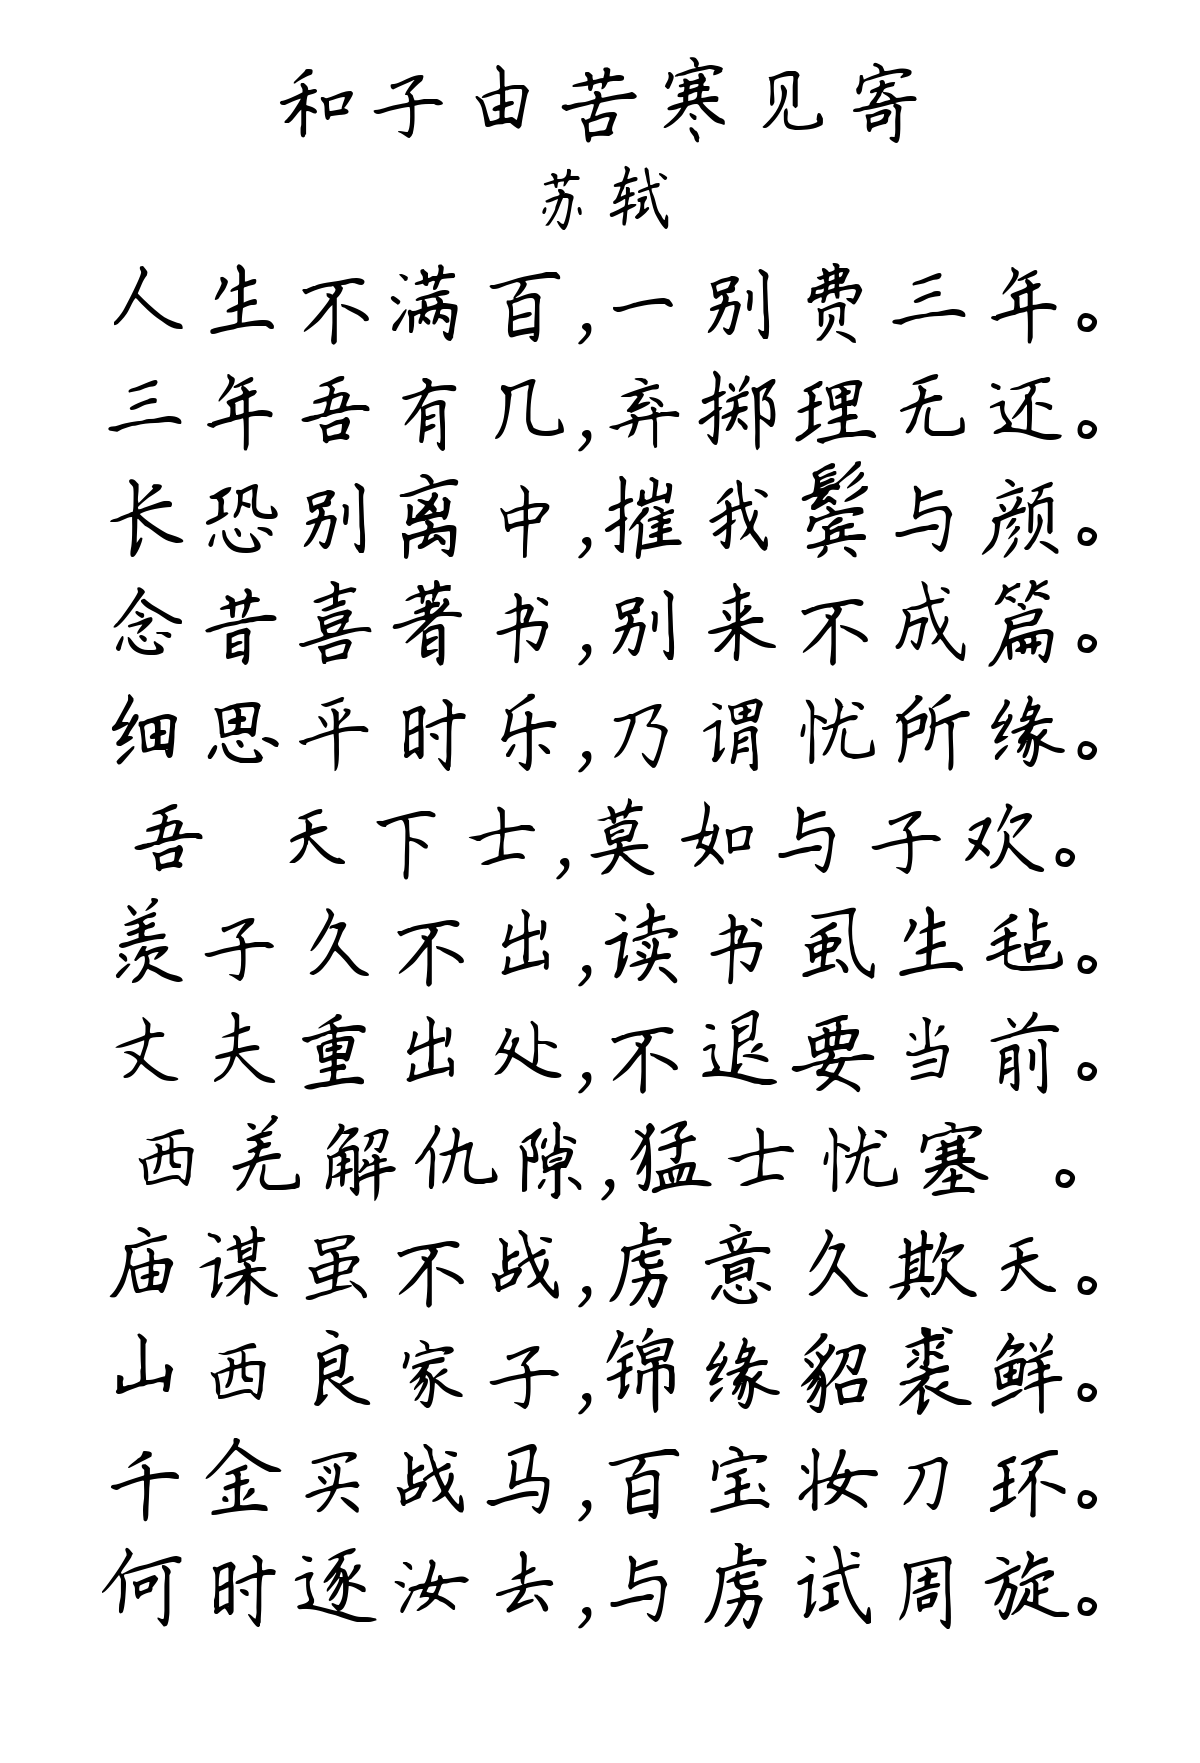 和子由苦寒见寄
苏轼
人生不满百,一别费三年。
三年吾有几,弃掷理无还。
长恐别离中,摧我鬓与颜。
念昔喜著书,别来不成篇。
细思平时乐,乃谓忧所缘。
吾 天下士,莫如与子欢。
羡子久不出,读书虱生毡。
丈夫重出处,不退要当前。
西羌解仇隙,猛士忧塞 。
庙谋虽不战,虏意久欺天。
山西良家子,锦缘貂裘鲜。
千金买战马,百宝妆刀环。
何时逐汝去,与虏试周旋。